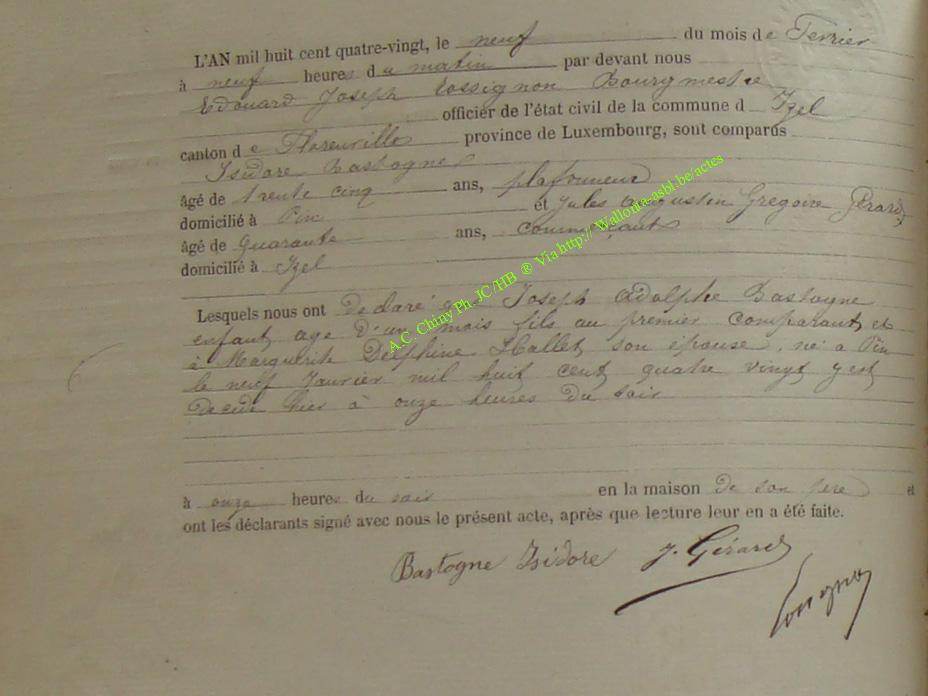 L'AN mil huit cent quatre-vingt, le neuf du mois de Fevrier
à neuf heures du matin par devant nous
Edouard Joseph Rossignon Bourgmestre
officier de l'état civil de la commune d Izel
canton de Florenville province de Luxembourg, sont comparus
Isidore Bastogne
âgé de trente cinq ans, plafonneur
domicilié à Pin et Jules Augustin Grégoire Gérard
âgé de quarante ans, commerçant
domicilié à Izel
Lesquels nous ont Declaré que Joseph Adolphe Bastogne
enfant age d'un mois fils au premier comparant et
à Marguerite Delphine Hallet son épouse, né a Pin
le neuf Janvier mil huit cent quatre vingt y est
décédé hier à onze heures du soir
à onze heures du soir en la maison de son père et
ont les déclarants signé avec nous le présent acte, après que lecture leur en a été faite.
Bastogne Isidore J. Gérard
A.C. Chiny Ph. JC/HB ® Via http:// Wallonia-asbl.be/actes